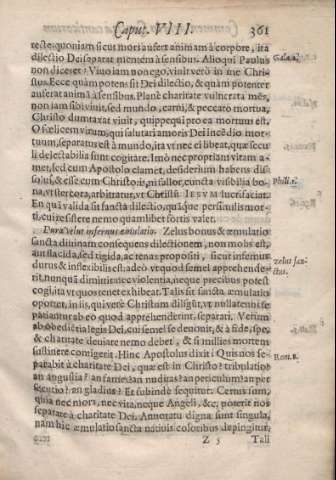 Caput. VIII. 361
recte: quoniam sicut mors aufert animam à corpore, ita
dilectio Dei separat mentem à sensibus. Alioqui Paulus Galat. 2.
non diceret? Vivo iam non ego, vivit verò in me Chri-
stus. Ecce quàm potens sit Dei dilectio, & quàm potenter
auferat animã à sensibus. Planè charitate vulnerata mẽs,
non iam sibi vivit, sed mundo, carni, & peccato mortua,
Christo dumtaxat vivit, quippe qui pro ea mortuus est.
O fœlicem virum, qui salutari amoris Dei incẽdio mor-
tuum, separatus est à mundo, ita vt nec ei libeat, quæ secu
li delectabilia sunt cogitare. Imò nec propriam vitam a-
met, sed cum Apostolo clamet, desiderium habens dis Phil. 1.
solui, & esse cum Christo: is, ni fallor, cuncta visibilia bo-
na, vt stercora, arbitratur, vt Christũ IESVM lucrifaciat.
En quã valida sit sancta dilectio, quã que persimilis mor-
ti, cui resistere nemo quamlibet fortis valet.
Dura velut infernus æmulatio. Zelus bonus & æmulatio
sancta divinam consequens dilectionem, non molis est,
aut flaccida, sed rigida, ac tenas propositi, sicut infernus Zelus san-
durus & inflexibilis est: adeò vt quod semel apprehende- ctus.
rit, nunquã diminuit ex violentia, neque precibus potest
cogi, ita vt quos tenet exhibeat. Talis sit sancta æmulatio
oportet, in iis, qui verè Christum diligũt, vt nullatenùs se
patiantur ab eo quod apprehenderint, separati. Verùm
ab obediẽtia legis Dei, cui semel se devonit, & à fide, spe,
& charitate deuiare nemo debet, & si millies mortem
sustinere contigerit. Hinc Apostolus dixit: Quis nos se- Rom. 8.
parabit à charitate Dei, quæ est in Christo? tribulatio?
an angustia? an fames? an nuditas? an periculum? an per
secutio? an gladius? Et subinde sequitur. Certus sum,
quia nec mors, nec vita, neque Angeli, &c. poterit nos
separare à charitate Dei. Annotatu digna sunt singula,
nam hic æmulatio sancta nativis coloribus depingitur.
Z 5 Tali